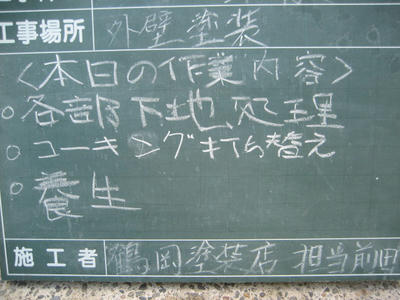 工事場所 外壁塗装
〈本日の作業内容〉
○各部下地処理
○コーキング打ち替え
○養生
施工者 鶴岡塗装店 担当前田